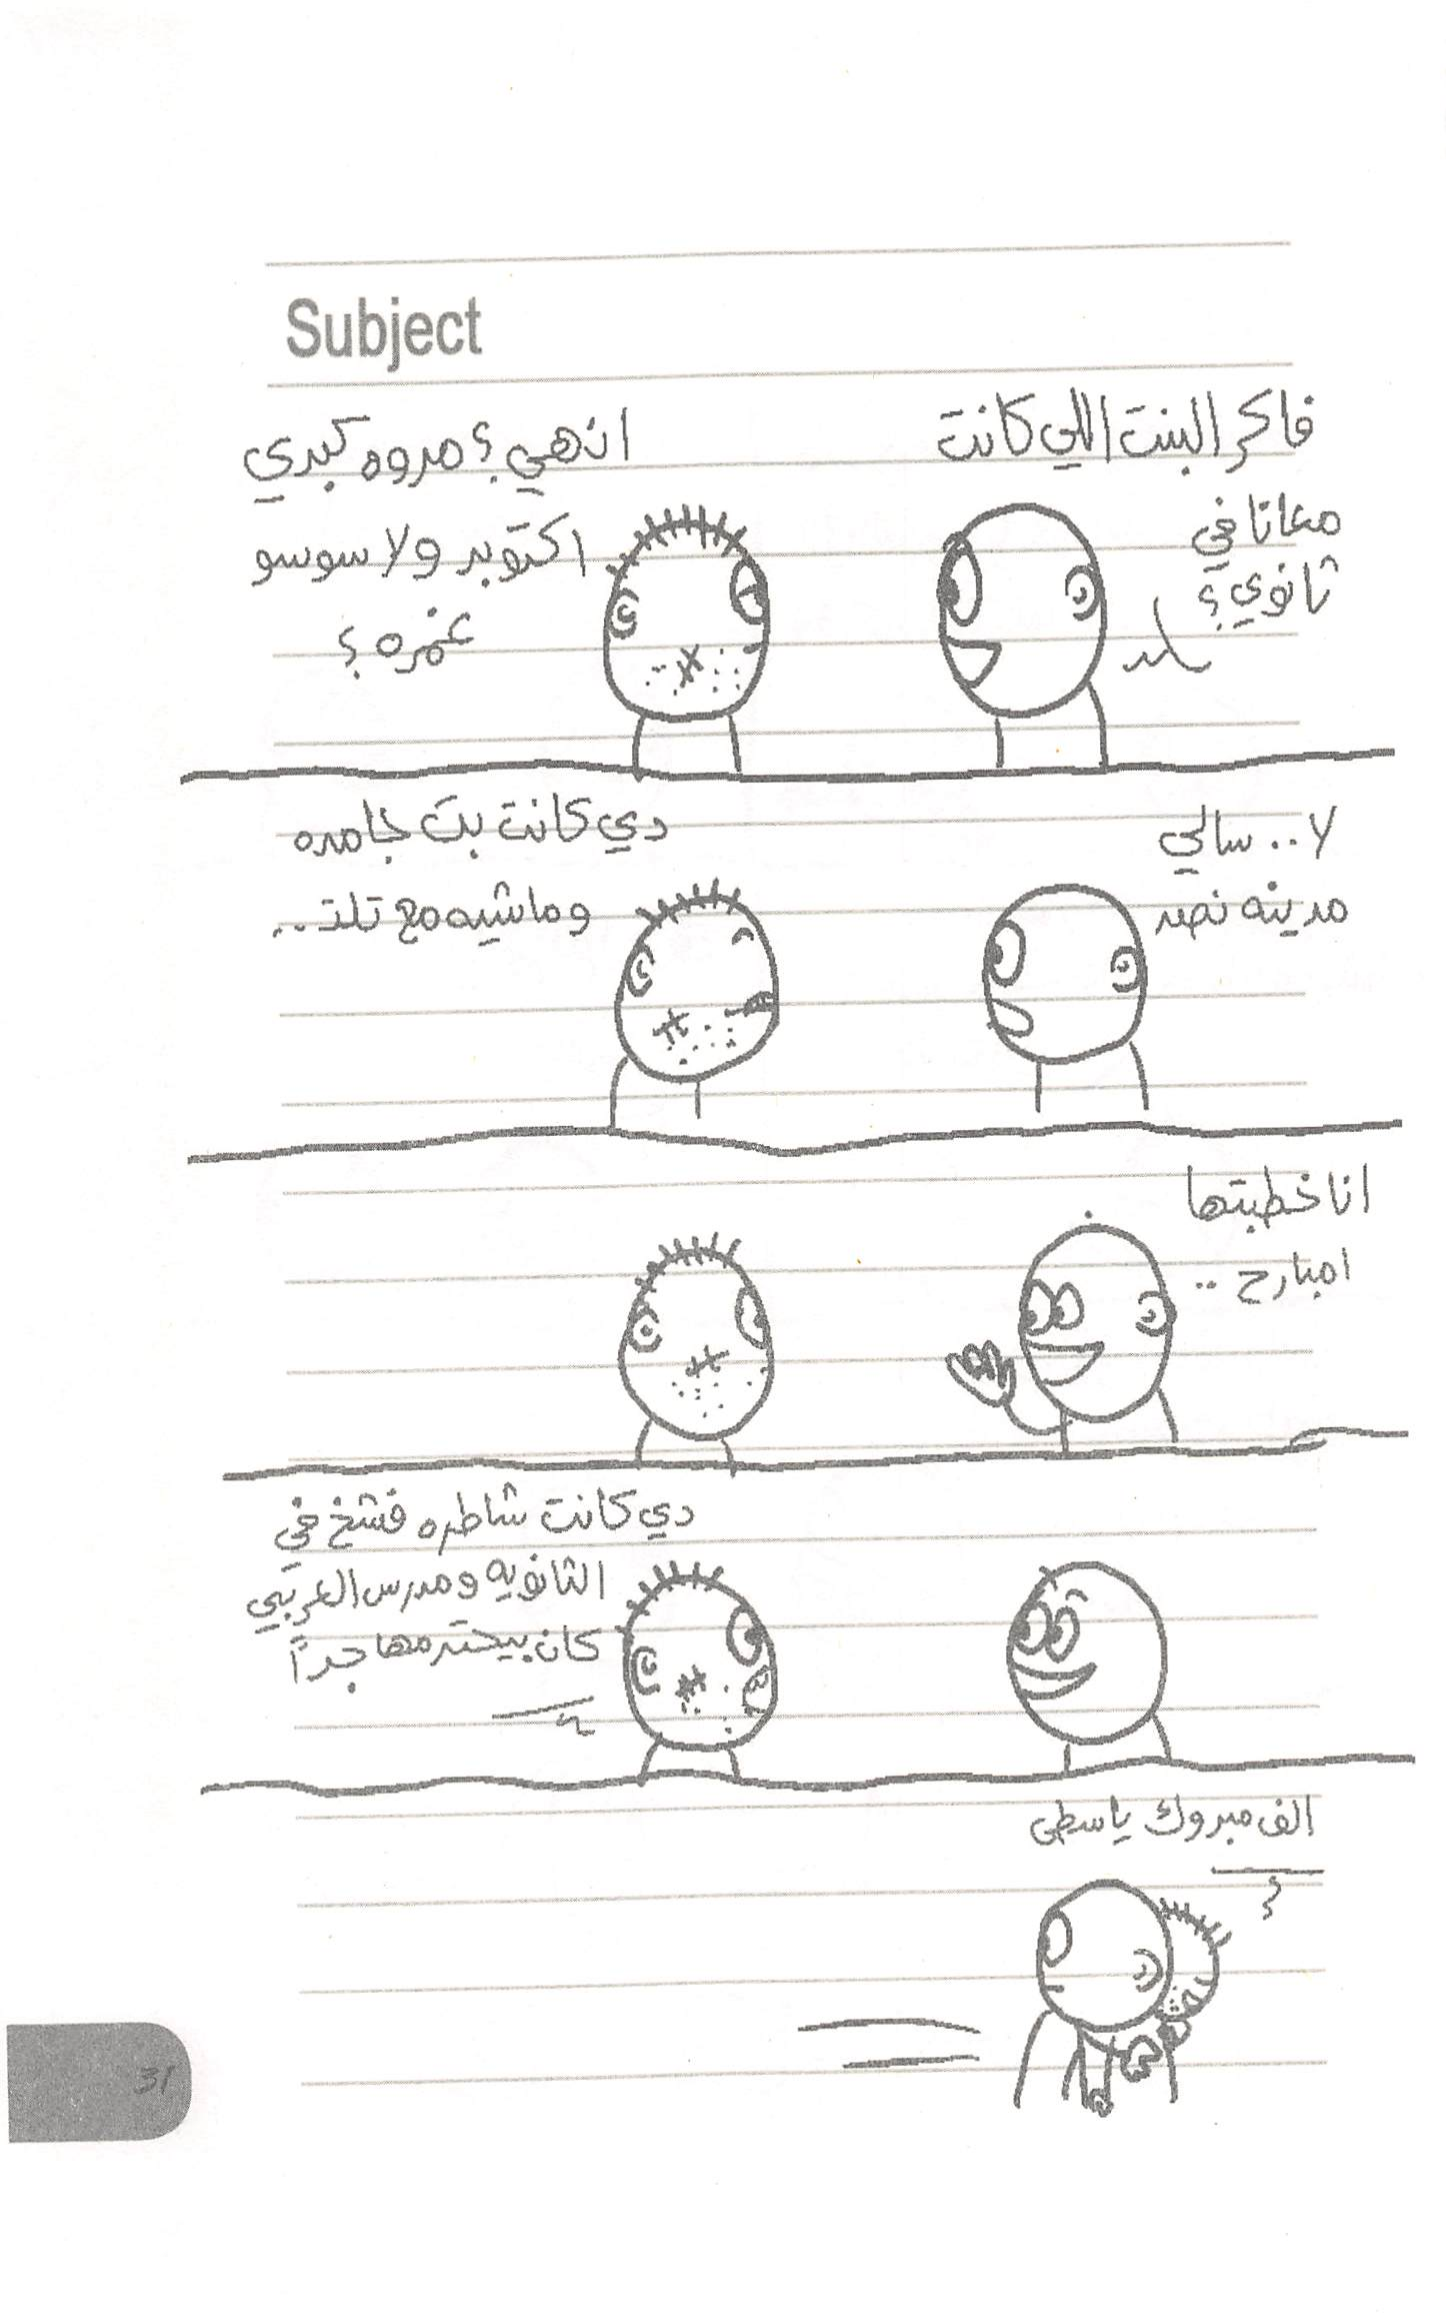 Subject
فاكر البنت اللي كانت
معانا في
ثانوي؟
انهي؟ مروه كبري
اكتوبر ولا سوسو
غمزه؟
لا.. سالي
مدينه نصر
دي كانت بت جامده
وماشيه مع تلت..
انا خطبتها
امبارح ..
دي كانت شاطره فشخ في
الثانويه ومدرس العربي
كان بيحترمها جداً
الف مبروك ياسطى
31